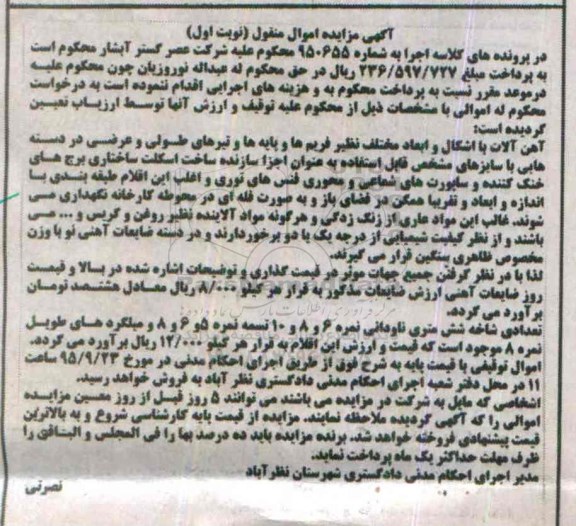 آگهی مزایده اموال منقول (نوبت اول)
در پرونده های کلاسه اجرا به شماره ۹۵۰۶۵۵ محکوم علیه شرکت عصر گستر آبشار محکوم است
به پرداخت مبلغ ۲۳۶/۵۹۷/۷۲۷ ریال در حق محکوم له عبداله نوروزیان چون محکوم علیه
درموعد مقرر نسبت به پرداخت محکوم به و هزینه های اجرایی اقدام ننموده است به درخواست
محکوم له اموالی با مشخصات ذیل از محکوم علیه توقیف و ارزش آنها توسط ارزیاب تعیین
گردیده است:
آهن آلات با اشکال و ابعاد مختلف نظیر فریم ها و پایه ها و تیرهای طولی و عرضی در دسته
هایی با سایزهای مشخص قابل استفاده به عنوان اجزا سازنده ساخت اسکلت ساختاری برج های
خنک کننده و ساپورت های شعاعی و محوری فنس های توری و اغلب این اقلام طبقه بندی با
اندازه و ابعاد و تقریبا همگن در فضای باز و به صورت فله ای در محوطه کارخانه نگهداری می
شوند. غالب این مواد عاری از زنگ زدگی و هرگونه مواد آلاینده نظیر روغن و گریس و ... می
باشند و از نظر کیفیت شیمیایی از درجه یک یا دو برخوردارند و در دسته ضایعات آهنی نو با وزن
مخصوص ظاهری سنگین قرار می گیرند.
لذا با در نظر گرفتن جمیع جهات موثر در قیمت گذاری و توضیحات اشاره شده در بالا و قیمت
روز ضایعات آهنی ارزش ضایعات مذکور به قرار هر کیلو ۸/۰۰۰ ریال معادل هشتصد تومان
برآورد می گردد.
تعدادی شاخه شش متری ناودانی نمره ۶ و ۸ و ۱۰ تسمه نمره ۵ و ۶ و ۸ و میلگرد های طویل
نمره ۸ موجود است که قیمت و ارزش این اقلام به قرار هر کیلو ۱۲/۰۰۰ ریال برآورد می گردد.
اموال توقیفی با قیمت پایه به شرح فوق از طریق اجرای احکام مدنی در مورخ ۹۵/۹/۲۳ ساعت
۱۱ در محل دفتر شعبه اجرای احکام مدنی دادگستری نظر آباد به فروش خواهد رسید.
اشخاصی که مایل به شرکت در مزایده می باشند می توانند ۵ روز قبل از روز معین مزایده
اموالی را که آگهی گردیده ملاحظه نمایند. مزایده از قیمت پایه کارشناسی شروع و به بالاترین
قیمت پیشنهادی فروخته خواهد شد. برنده مزایده باید ده درصد بها را فی المجلس و البقاقی را
ظرف مهلت حداکثر یک ماه پرداخت نماید.
مدیر اجرای احکام مدنی دادگستری شهرستان نظرآباد
نصرتی